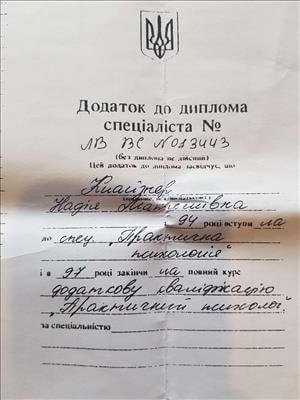 Додаток до диплома
спеціаліста №
ЛВ ВС №013443
(без диплома не дійсний)
Цей додаток до диплома засвідчує, що
Надія
94 році вступи ла
до спец. "Практична
психологія"
і в 97 році закінчи ла повний курс
додаткову кваліфікацію
"Практичний психолог".
за спеціальністю